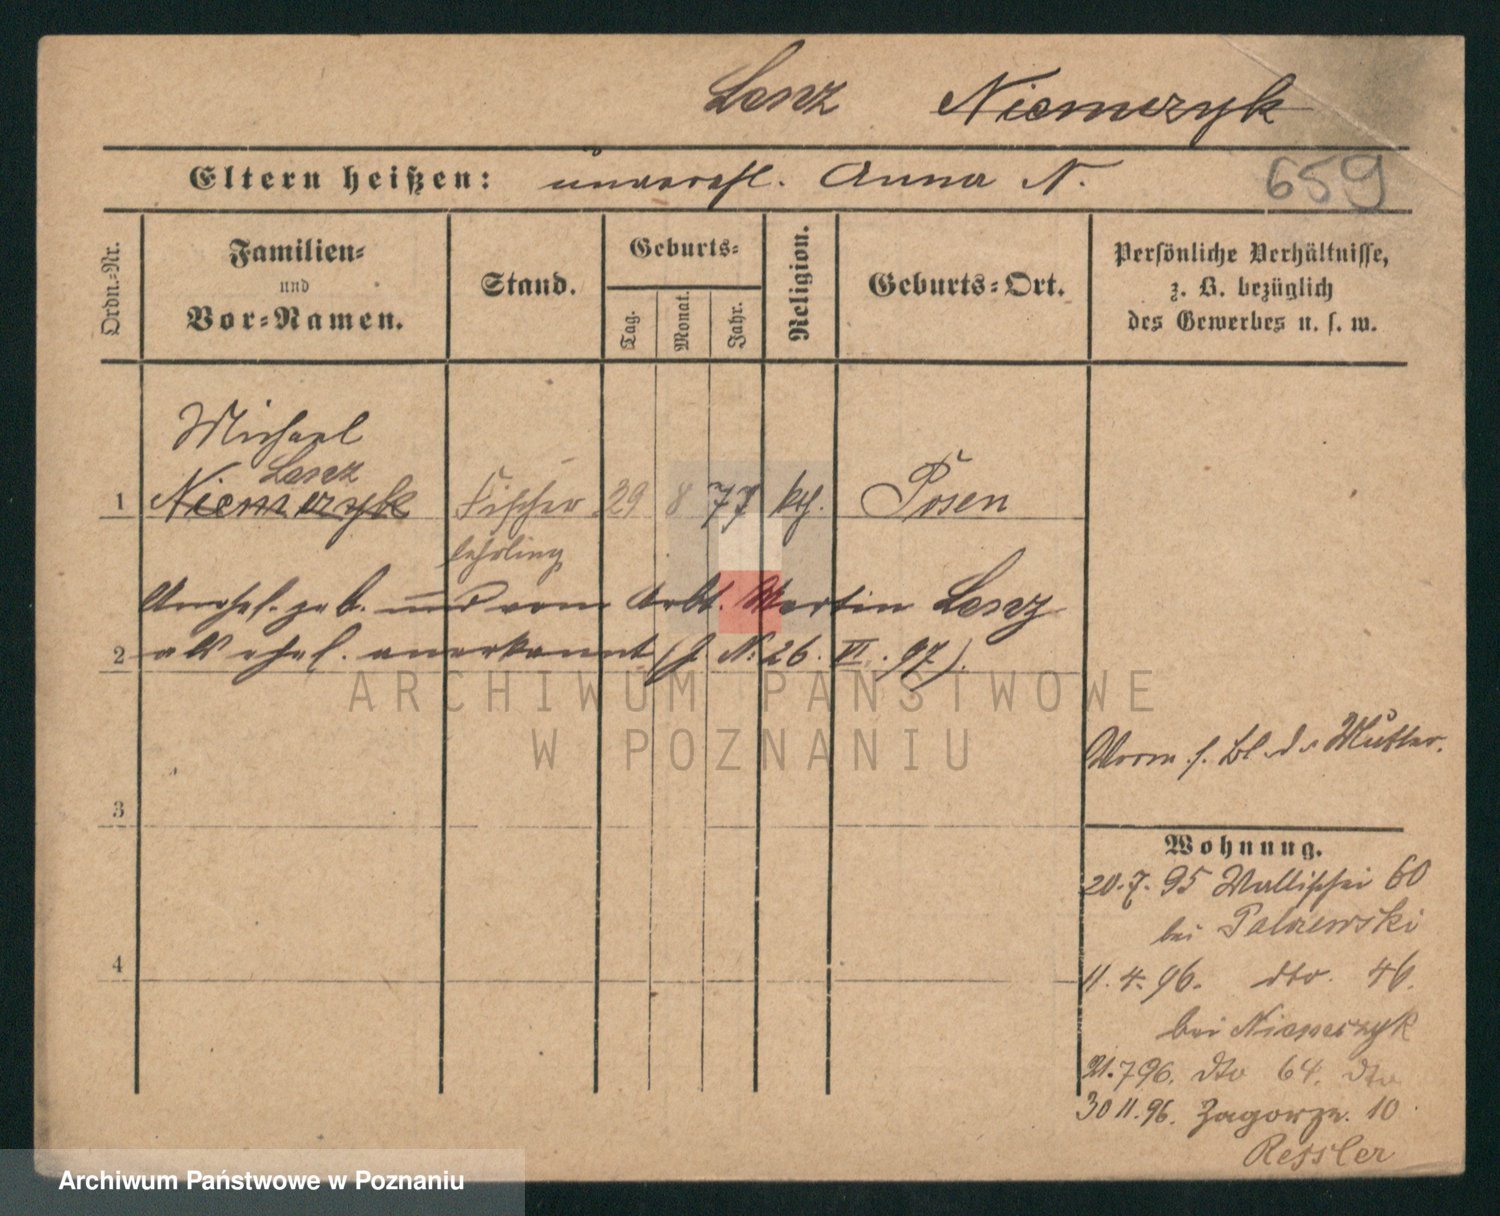 Lenz Niemczyk
Eltern heißen: unverehl. Anna N.
659
Ordn.-Nr.
Familien-
und
Vor-Namen.
Stand.
Geburts-
Tag.
Monat.
Jahr.
Religion.
Geburts-Ort.
Persönliche Verhältnisse,
z. B. bezüglich
des Gewerbes u. s. w.
Michael
Lenz
1 Niemczyk Fischer 29 8 77 kth. Posen
lehrling
Unehel. geb. und vom Arbt. Martin Lenz
2 als ehel. anerkannt (J. N. 26. VI. 97).
ARCHIWUM PAŃSTWOWE
W POZNANIU
Vorm. s. Bl. d. Mutter.
3
Wohnung.
20.7.95 Wallischei 60
bei Palczewski
4
11.4.96. dto. 46.
bei Niemczyk
21.7.96. dto 64. dto
30 11.96. Zagorze. 10
Ressler
Archiwum Państwowe w Poznaniu